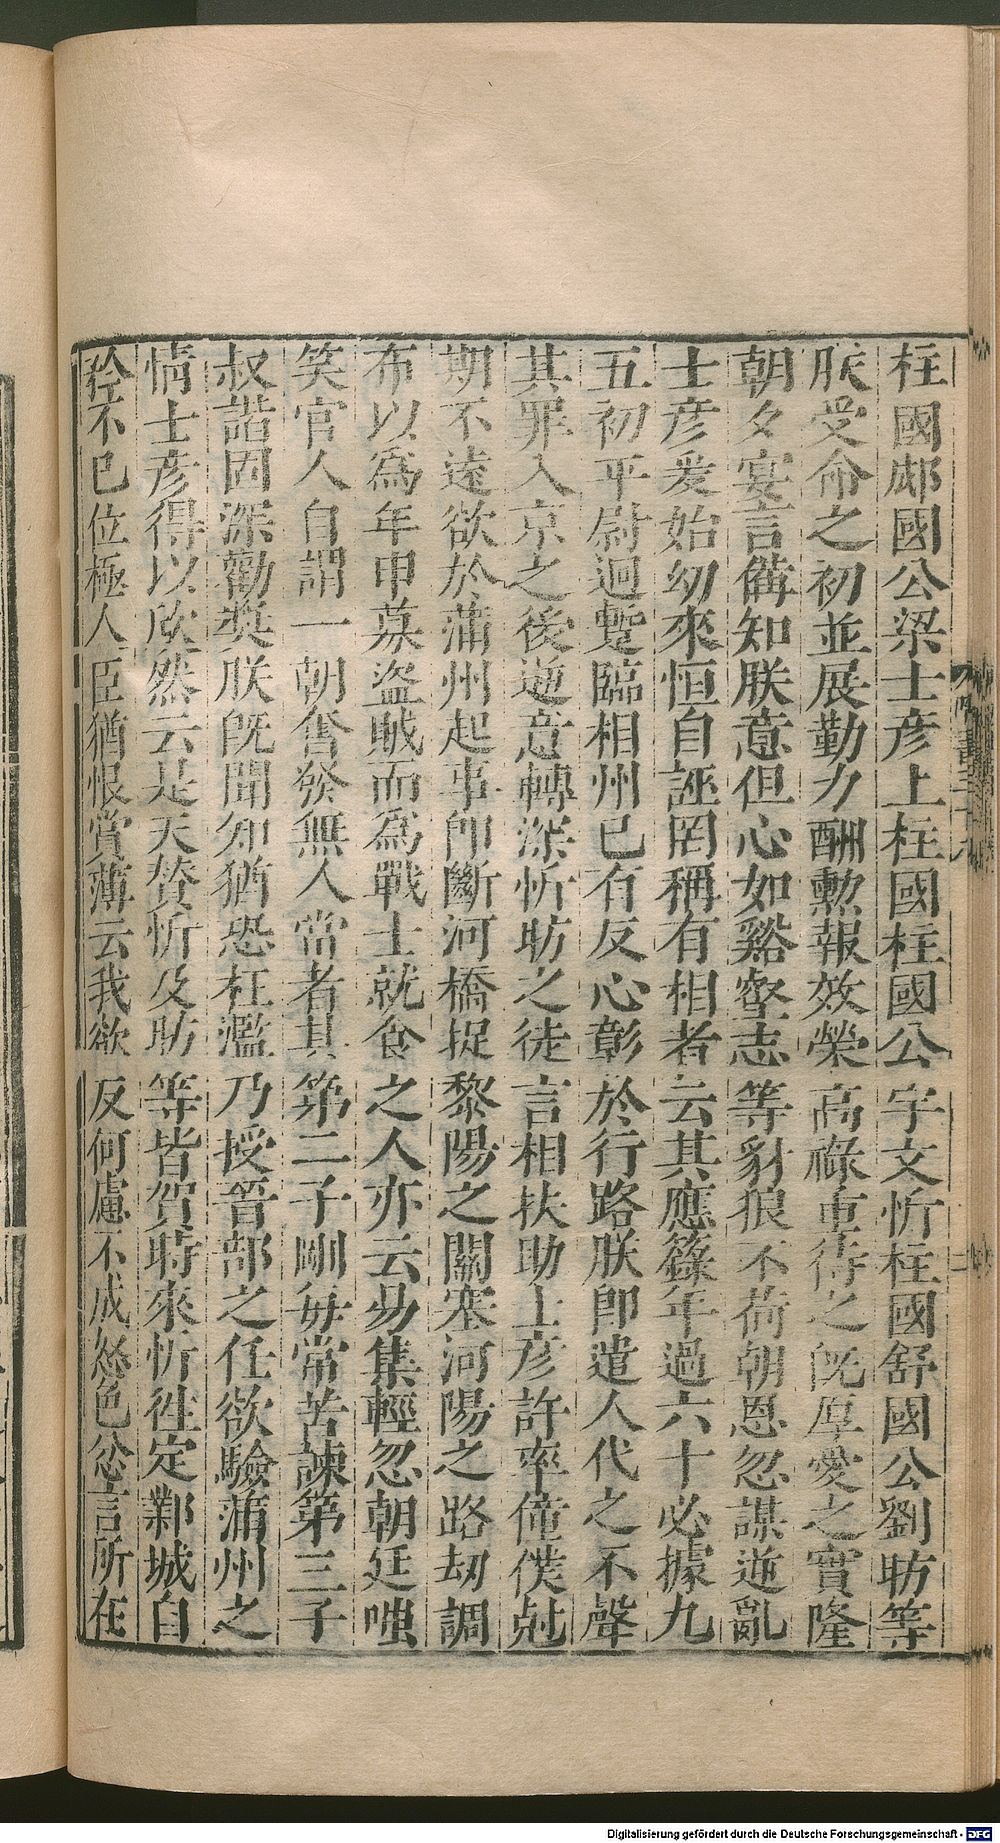 柱國郕國公梁士彥上柱國柱國公宇文忻柱國舒國公劉昉等
朕受命之初並展勤力酬勲報效榮高祿重待之旣厚愛之實隆
朝夕宴言備知朕意但心如谿壑志等豺狼不荷朝恩忽謀逆亂
士彥爰始幼來恒自誣罔稱有相者云其應籙年過六十必據九
五初平尉迥蹔臨相州已有反心彰於行路朕卽遣人代之不聲
其罪入京之後逆意轉深忻昉之徒言相扶助士彥許率僮僕尅
期不遠欲於蒲州起事卽斷河橋捉黎陽之關塞河陽之路刼調
布以爲年甲募盜賊而爲戰士就食之人亦云易集輕忽朝廷嗤
笑官人自謂一朝奮發無人當者其第二子剛每常苦諫第三子
叔諧固深勸奬朕旣聞知猶恐枉濫乃授晉部之任欲驗蒲州之
情士彥得以欣然云是天贊忻及昉等皆賀時來忻往定鄴城自
矜不已位極人臣猶恨賞薄云我欲反何慮不成怒色忿言所在